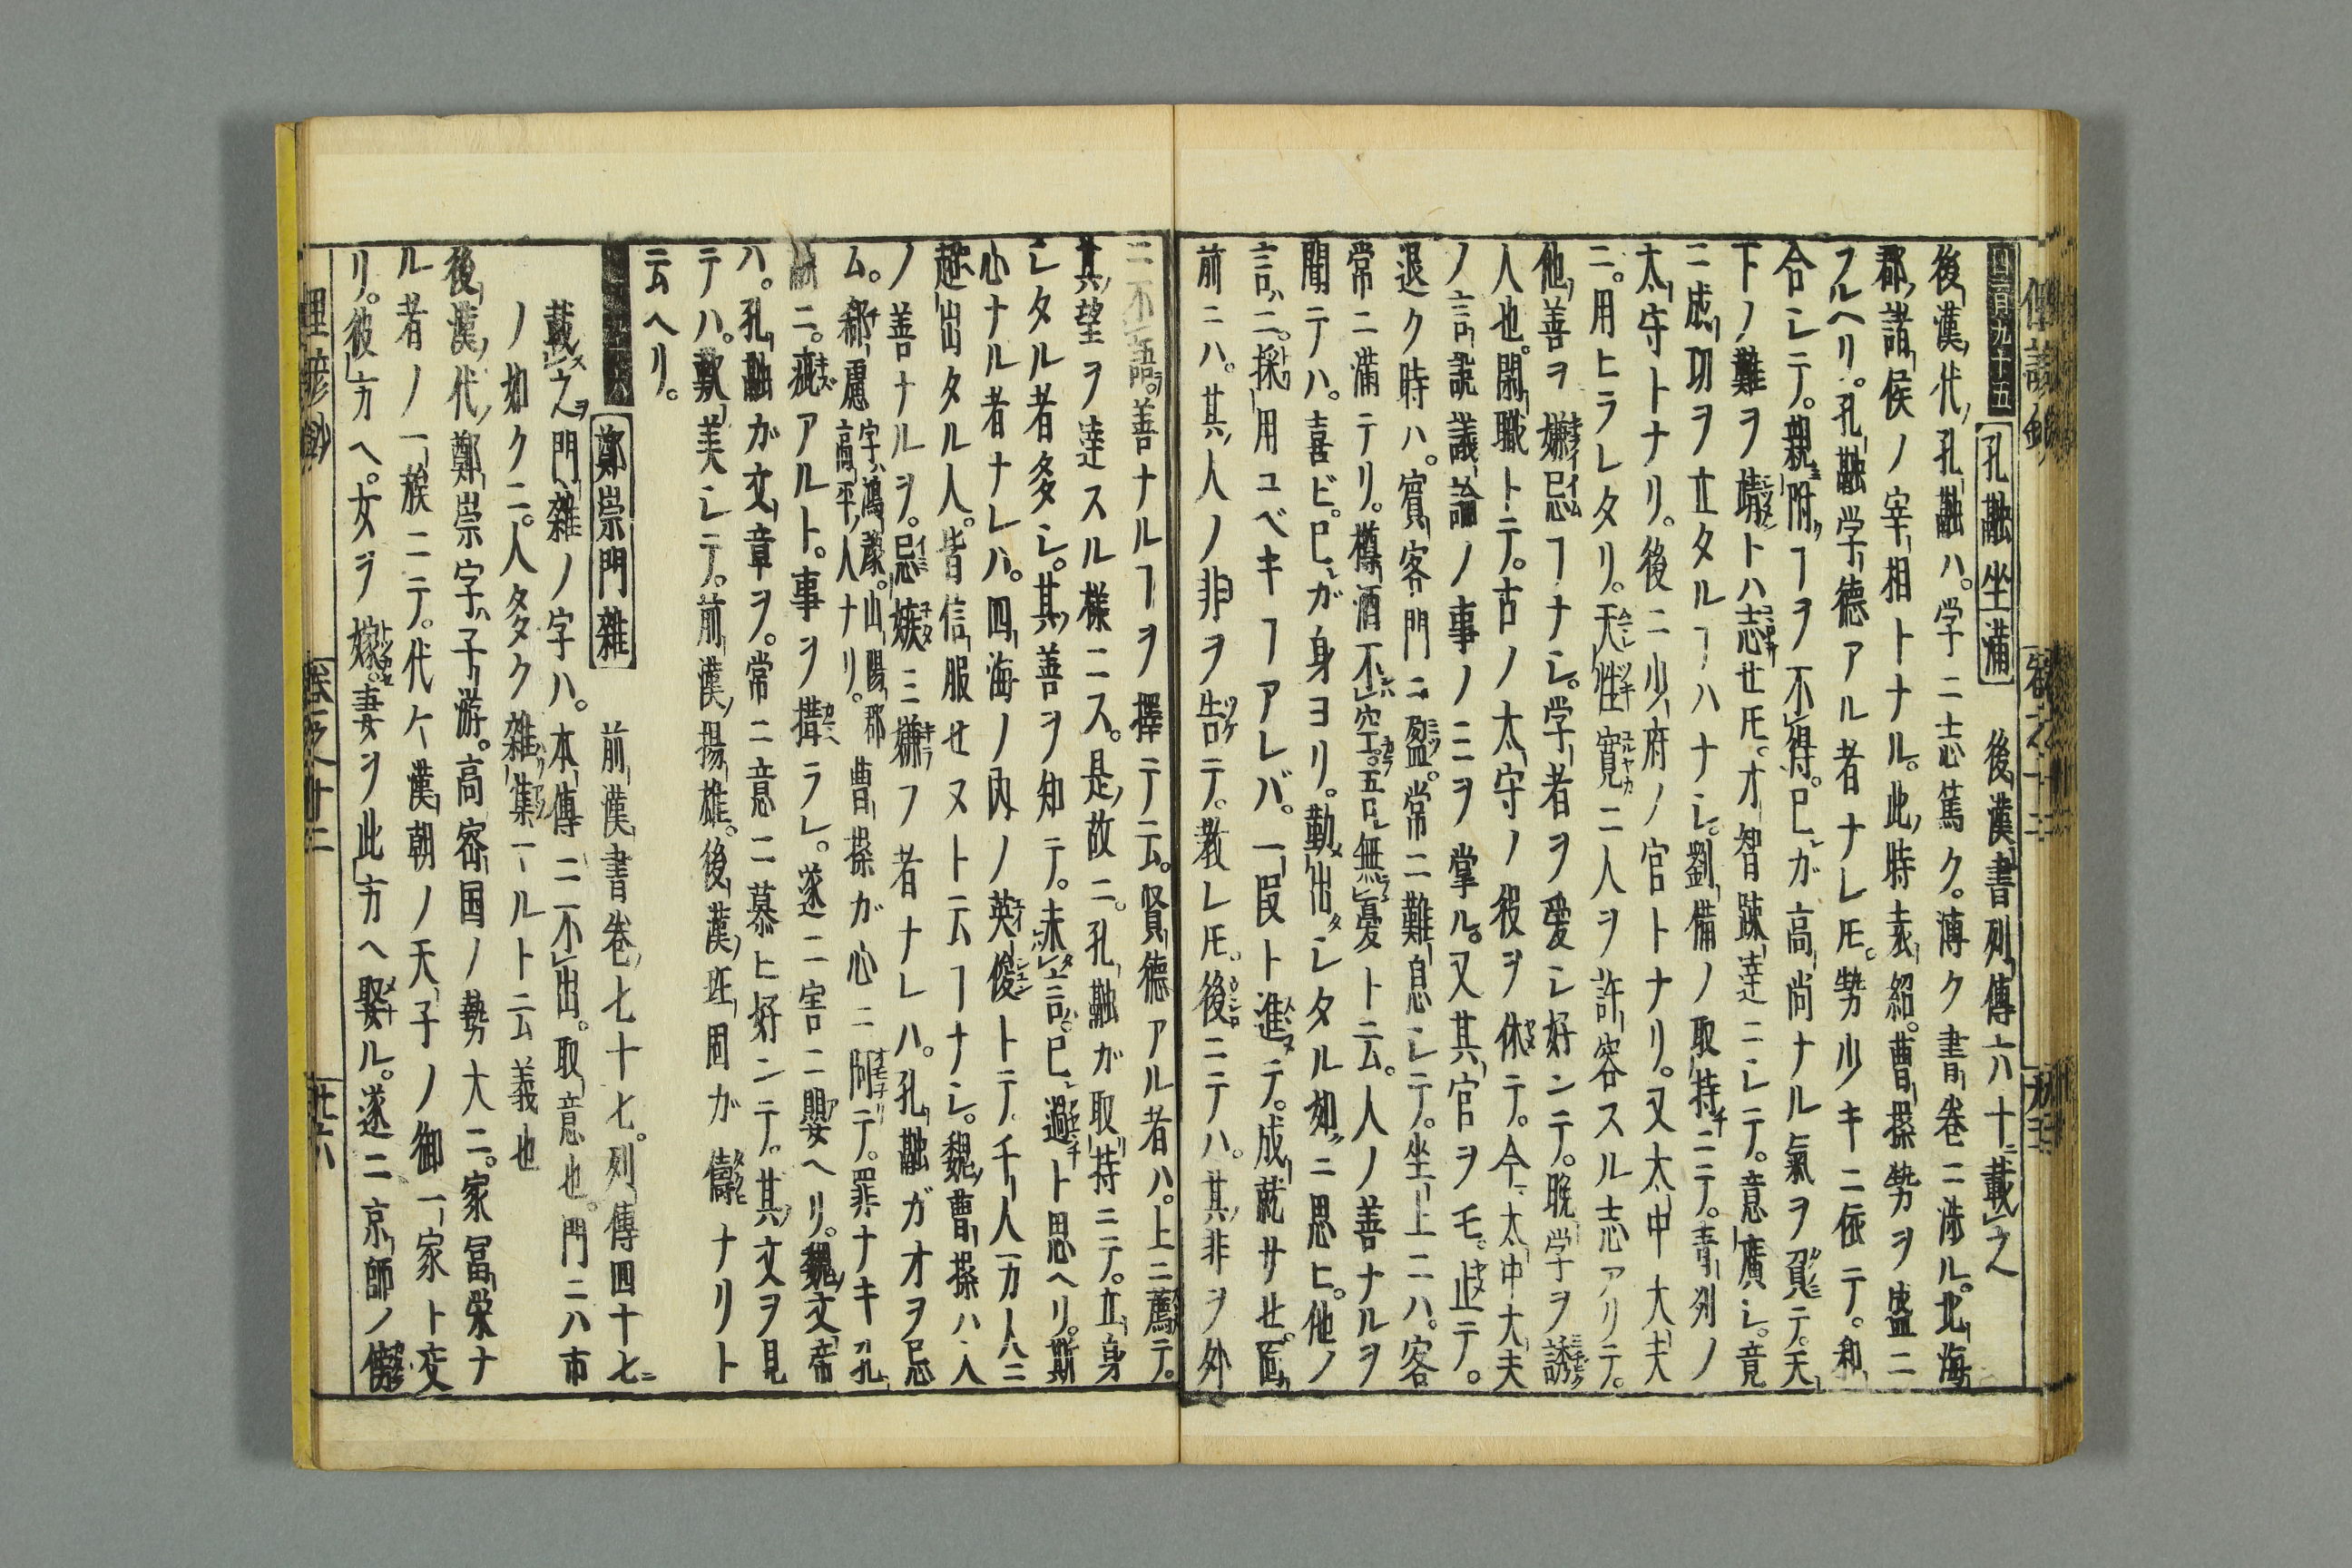 孔融坐滿 後漢書列傳六十載之
後漢ノ代ノ孔融ハ。学ニ志篤ク。博ク書卷ニ渉ル。北海
郡ノ諸侯ノ宰相トナル。此時袁紹。曹操勢ヲ盛ニ
フルヘリ。孔融学徳アル者ナレ𪜈。勢少キニ依テ。和
合シテ。親附フヿヲ不得。巳ガ高尚ナル氣ヲ負テ。天
下ノ難ヲ靖トハ志セ𪜈。才智踈達ニシテ。意廣シ。竟
ニ成功ヲ立タルヿハナシ。劉備ノ取持ニテ。青州ノ
太守トナリ。後ニ少府ノ官トナリ。又太中大夫
ニ。用ヒラレタリ。天性寛ニ人ヲ許容スル志アリテ。
他ノ善ヲ嫌忌ヿナシ。学者ヲ愛シ好ンテ。晩学ヲ誘
人也。閑職トテ。古ノ太守ノ役ヲ休テ。今太中大夫
ノ言説議論ノ事ノミヲ掌ル。又其官ヲモ。止テ。
退ク時ハ。賓客門ニ盈。常ニ難息シテ。坐上ニハ。客
常ニ滿テリ。樽酒不空。吾無憂ト云。人ノ善ナルヲ
聞テハ。喜ビ。巳ガ身ヨリ。勤出シタル如ニ思ヒ。他ノ
言ニ。採用ユベキヿアレバ。一段ト進テ。成就サセ。面
前ニハ。其人ノ非ヲ告テ。教レ𪜈。後ニテハ。其非ヲ外
ニ不語。善ナルヿヲ擇テ云。賢德アル者ハ。上ニ薦テ。
其望ヲ達スル様ニス。是故ニ。孔融が取持ニテ。立身
シタル者多シ。其善ヲ知テ。未言。巳過ト思ヘリ。斯
心ナル者ナレハ。四海ノ内ノ英俊トテ千人万人ニ
超出タル人。皆信服セヌト云ヿナシ。魏曹操ハ人
ノ善ナルヲ。忌嫉ミ嫌フ者ナレハ。孔融ガオヲ忌
ム。郗慮字ハ鴻豫。山陽郡高平ノ人ナリ。曹操ガ心ニ阿テ。罪ナキ孔
融ニ。疵アルト。事ヲ搆ラレ。遂ニ害ニ嬰ヘリ。魏文帝
ハ。孔融ガ文章ヲ。常ニ意ニ慕ヒ好ンテ。其文ヲ見
テハ。歎美シテ。前漢ノ揚雄。後漢ノ班固ガ儔ナリト
云ヘリ。
鄭崇門雜 前漢書卷七十七。列傳四十七ニ
載之ヲ門雜ノ字ハ。本傳ニ不出。取意也。門ニハ市
ノ如クニ。人多ク雜集ールト云義也
後漢ノ代ノ鄭崇字ハ子游。高密国ノ勢大ニ。家冨栄ナ
ル者ノ一族ニテ。代々漢朝ノ天子ノ御一家ト交
リ。彼方ヘ。女ヲ嫁。妻ヲ此方ヘ娶ル。遂ニ京師ノ
卷之十二